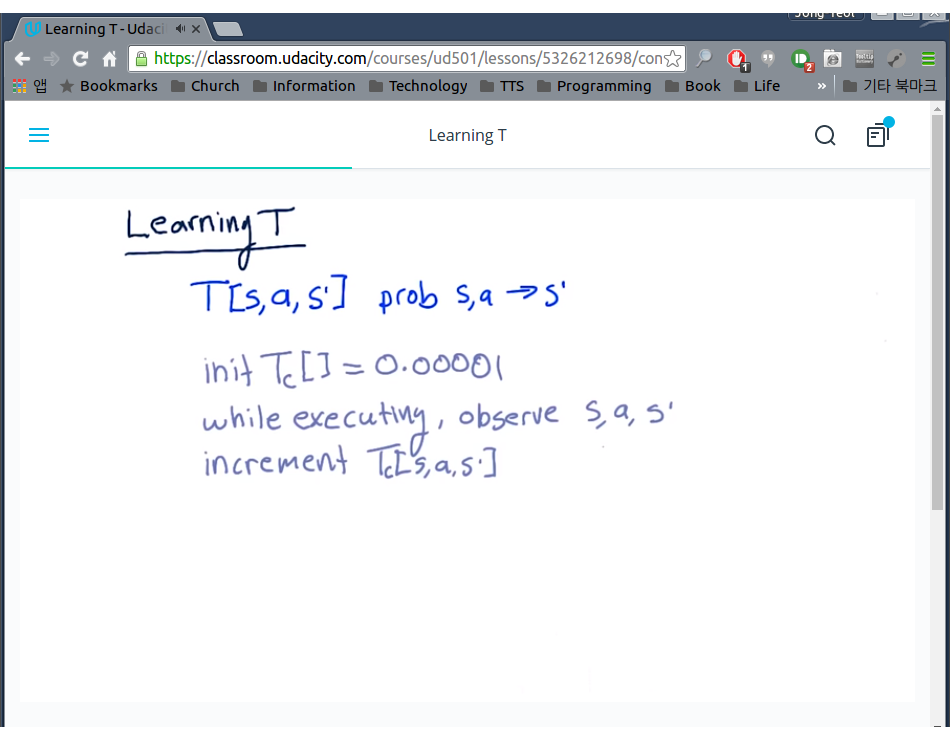 Jong Yeol
Learning T - Udaci
https://classroom.udacity.com/courses/ud501/lessons/5326212698/con
1
2
앱 Bookmarks Church Information Technology TTS Programming Book Life » 기타 북마크
Learning T
Learning T
T[s,a,s'] prob s,a → s'
init Tc[] = 0.00001
while executing, observe s, a, s'
increment Tc[s,a,s']